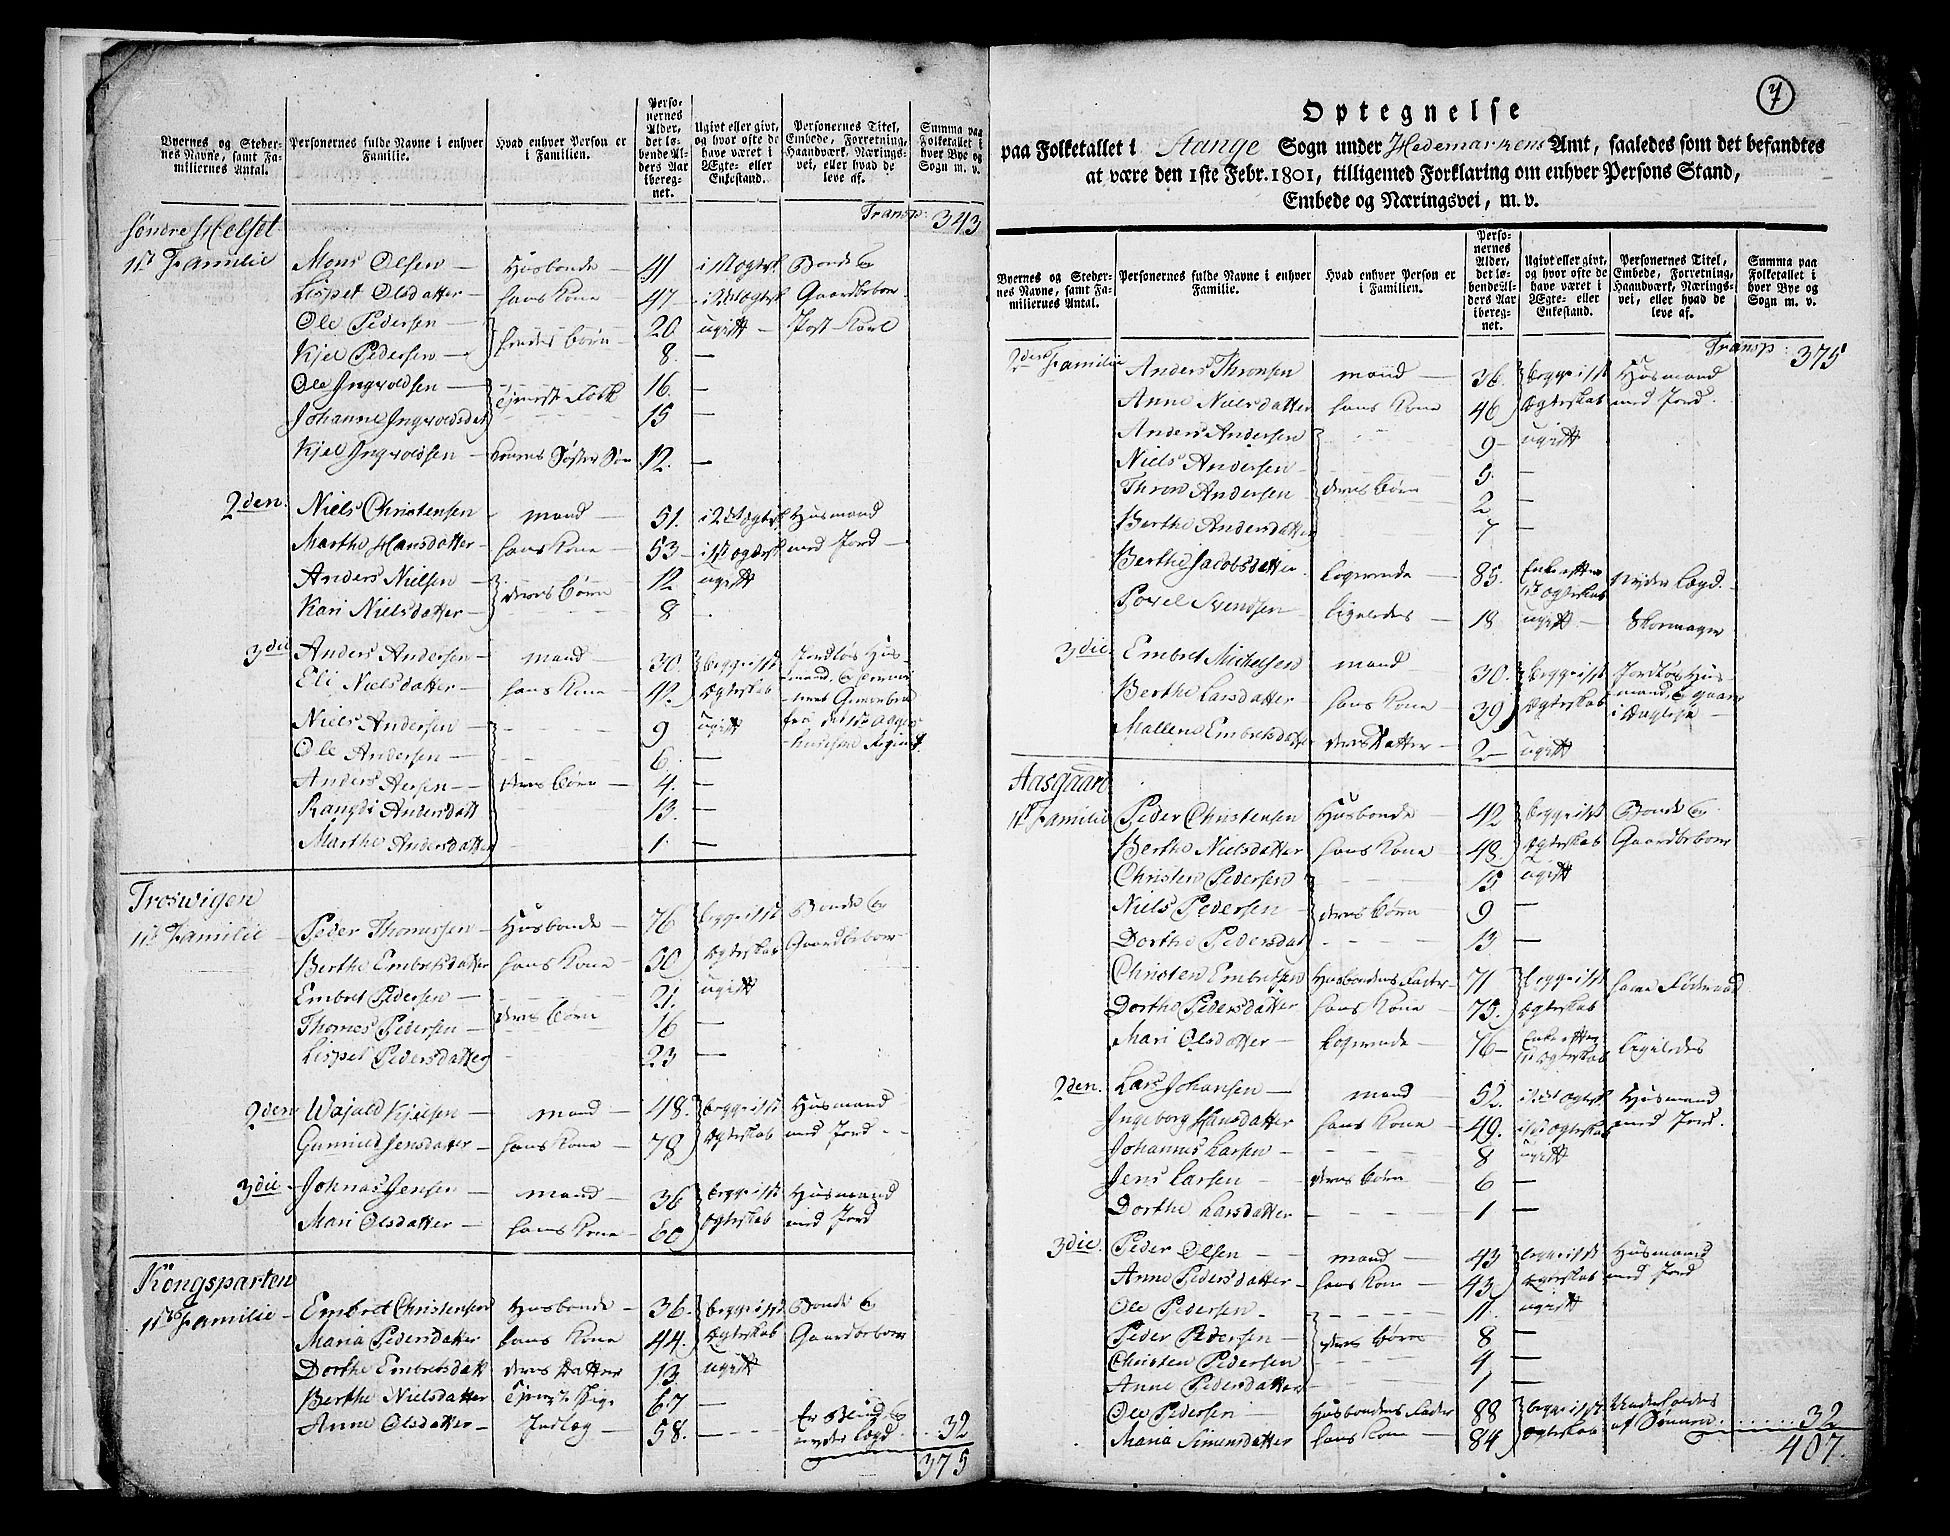 Byernes og Steder-
nes Navne, samt Fa-
miliernes Antal.
Personernes fulde Navne i enhver
Familie.
Hvad enhver Person er
i Familien.
Perso-
nernes
Alder,
det lø-
bende Al-
ders Aar
iberegnet.
Ugivt eller givt,
og hvor ofte de
have været i
Ægte- eller
Enkestand.
Personernes Titel,
Embede, Forretning,
Haandværk, Nærings-
vei, eller hvad de
leve af.
Summa paa
Folketallet i
hver Bye og
Sogn m. v.
Transp: 343
Søndre Helset
1st Familie Mons Olsen Husbonde 41 i 1st Ægtesk Bonde og
Lispet Olsdatter hans Kone 47 i 2det Ægtesk Gaardbeboer
Ole Pedersen 20 ugift
Kjel Pedersen hendes børn 8 —
Ole Ingvoldsen 16. —
Johanne Ingvoldsdat Tjeneste Folk 15 —
Kjel Ingvoldsen Konens Søster Søn 12. —
2den Niels Christensen mand 51. i 2det Ægtesk Husmand
Marthe Hansdatter hans Kone 53 i 1st Ægtesk med Jord
Anders Nielsen 12 ugift
Kari Nielsdatter deres børn 8
3die Anders Andersen mand 30. begge i 1st Jordløs Hus-
Eli Nielsdatter hans Kone 42. Ægteskab mand,
Niels Andersen 9 ugift
Ole Andersen 6. —
Anders Aersen deres børn 4. —
Rangdi Andersdatt 13. —
Marthe Andersdatter 1. —
Troswigen
1ste Familie Peder Thomessen Husbonde 76 begge i 1st Bonde og
Berthe Embretsdatter hans Kone 50 Ægteskab Gaardbeboer
Embret Pedersen 21. ugift
Thomes Pedersen deres børn 16 —
Lispet Pedersdatter 23 —
2den Wajald Kjelsen mand 48. begge i 1st Husmand
Gunnild Jensdatter hans Kone 78 Ægteskab med Jord
3die Johnas Jensen mand 36 begge i 1st Husmand
Mari Olsdatter hans Kone 60 Ægteskab med Jord
Kongsparten
1ste Familie Embret Christensen Husbonde 36. begge i 1st Bonde og
Maria Pedersdatter hans Kone 44. Ægteskab Gaardbeboer
Dorthe Embretsdatt deres Datter 13. ugift
Berthe Nielsdatter Tjeneste Pige 67 —
Anne Olsdatter Indlog 58. — Er Blind og
nyder lægd. 32
375
7
Optegnelse
paa Folketallet i Stange Sogn under Hedemarkens Amt, saaledes som det befandtes
at være den 1ste Febr. 1801, tilligemed Forklaring om enhver Persons Stand,
Embede og Næringsvei, m. v.
Byernes og Steder-
nes Navne, samt Fa-
miliernes Antal.
Personernes fulde Navne i enhver
Familie.
Hvad enhver Person er
i Familien.
Perso-
nernes
Alder,
det lø-
bende Al-
ders Aar
iberegnet.
Ugivt eller givt,
og hvor ofte de
have været i
Ægte- eller
Enkestand.
Personernes Titel,
Embede, Forretning,
Haandværk, Nærings-
vei, eller hvad de
leve af.
Summa paa
Folketallet i
hver Bye og
Sogn m. v.
Transp: 375
2den Familie Anders Thronsen mand 36. begge i 1st Husmand
Anne Nielsdatter hans Kone 46 Ægteskab med Jord.
Anders Andersen 9 ugift
Niels Andersen 5. —
Thron Andersen deres børn 2 —
Berthe Andersdatter 7 —
Berthe Jacobsdatter Logerende 85. Enke efter nyder Lægd.
1st Ægteskab
Povel Svendsen ligeledes 18 ugift Skomager
3die Embret Michelsen mand 30. begge i 1st Jordløs Hus-
Berthe Larsdatter hans Kone 39 Ægteskab mand, og gaar
Mallene Embretsdatter deres Datter 2 ugift
Aasgaard
1st Familie Peder Christensen Husbonde 42 begge i 1st Bonde og
Berthe Nielsdatter hans Kone 48. Ægteskab Gaardbeboer
Christen Pedersen 15 ugift
Niels Pedersen deres børn 9 —
Dorthe Pedersdat 13 —
Christen Embretsen Husbondens Fader 71 begge i 1st
Dorthe Pedersdatter hans Kone 73. Ægteskab
Mari Olsdatter Logerende 76 Enke efter ligeledes
1st Ægteskab
2den. Lars Johansen mand 52. i 2det Ægtesk Husmand
Ingeborg Hansdatter hans Kone 49. i 1st Ægteskab med Jord.
Johannes Larsen 8 ugift
Jens Larsen deres børn 6 —
Dorthe Larsdatter 1 —
3die. Peder Olsen mand 43 begge i 1st Husmand
Anne Pedersdatter hans Kone 43. Ægteskab med Jord
Ole Pedersen 11. ugift
Peder Pedersen deres børn 8 —
Christen Pedersen 4 —
Anne Pedersdatter 1 —
Ole Pedersen Husbondens Fader 88 begge i 1st Underholdes
Maria Simensdatter hans Kone 84 Ægteskab af Sønnen 32
407.